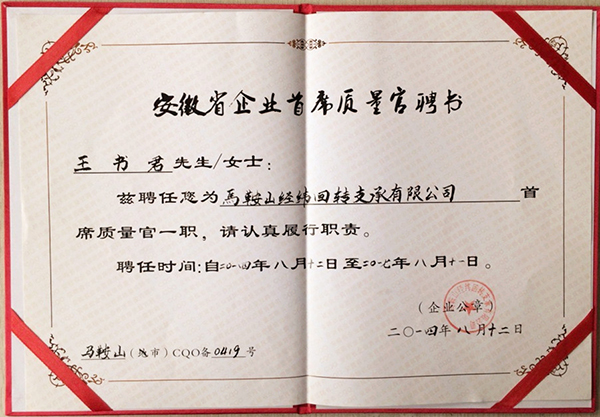 安徽省企业首席质量官聘书
王书君先生/女士：
兹聘任您为馬鞍山经纬回转支承有限公司首
席质量官一职，请认真履行职责。
聘任时间：自二〇一四年八月十二日至二〇一七年八月十一日。
（企业公章）
二〇一四年八月十二日
马鞍山（地市）CQO备0419号